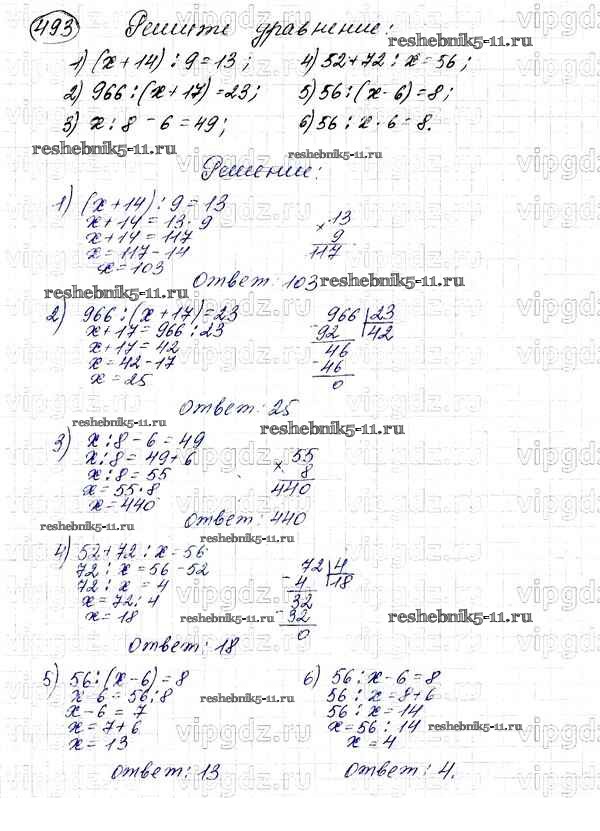 493 Решите уравнение:
1) (x+14) : 9 = 13; 4) 52+72 : x = 56;
2) 966 : (x+17) = 23; 5) 56 : (x-6) = 8;
3) x : 8 - 6 = 49; 6) 56 : x - 6 = 8.
Решение:
1) (x+14) : 9 = 13
x+14 = 13 · 9
x+14 = 117
x = 117 - 14
x = 103
× 13
9
117
Ответ: 103
2) 966 : (x+17) = 23
x+17 = 966 : 23
x+17 = 42
x = 42 - 17
x = 25
966 | 23
- 92 42
46
- 46
0
Ответ: 25
3) x : 8 - 6 = 49
x : 8 = 49 + 6
x : 8 = 55
x = 55 · 8
x = 440
× 55
8
440
Ответ: 440
4) 52 + 72 : x = 56
72 : x = 56 - 52
72 : x = 4
x = 72 : 4
x = 18
72 | 4
- 4 18
32
- 32
0
Ответ: 18
5) 56 : (x-6) = 8
x-6 = 56 : 8
x-6 = 7
x = 7+6
x = 13
Ответ: 13
6) 56 : x - 6 = 8
56 : x = 8+6
56 : x = 14
x = 56 : 14
x = 4
Ответ: 4.
reshebnik5-11.ru
reshebnik5-11.ru
reshebnik5-11.ru
reshebnik5-11.ru
reshebnik5-11.ru
reshebnik5-11.ru
reshebnik5-11.ru
reshebnik5-11.ru
reshebnik5-11.ru
reshebnik5-11.ru
reshebnik5-11.ru
reshebnik5-11.ru
vipgdz.ru